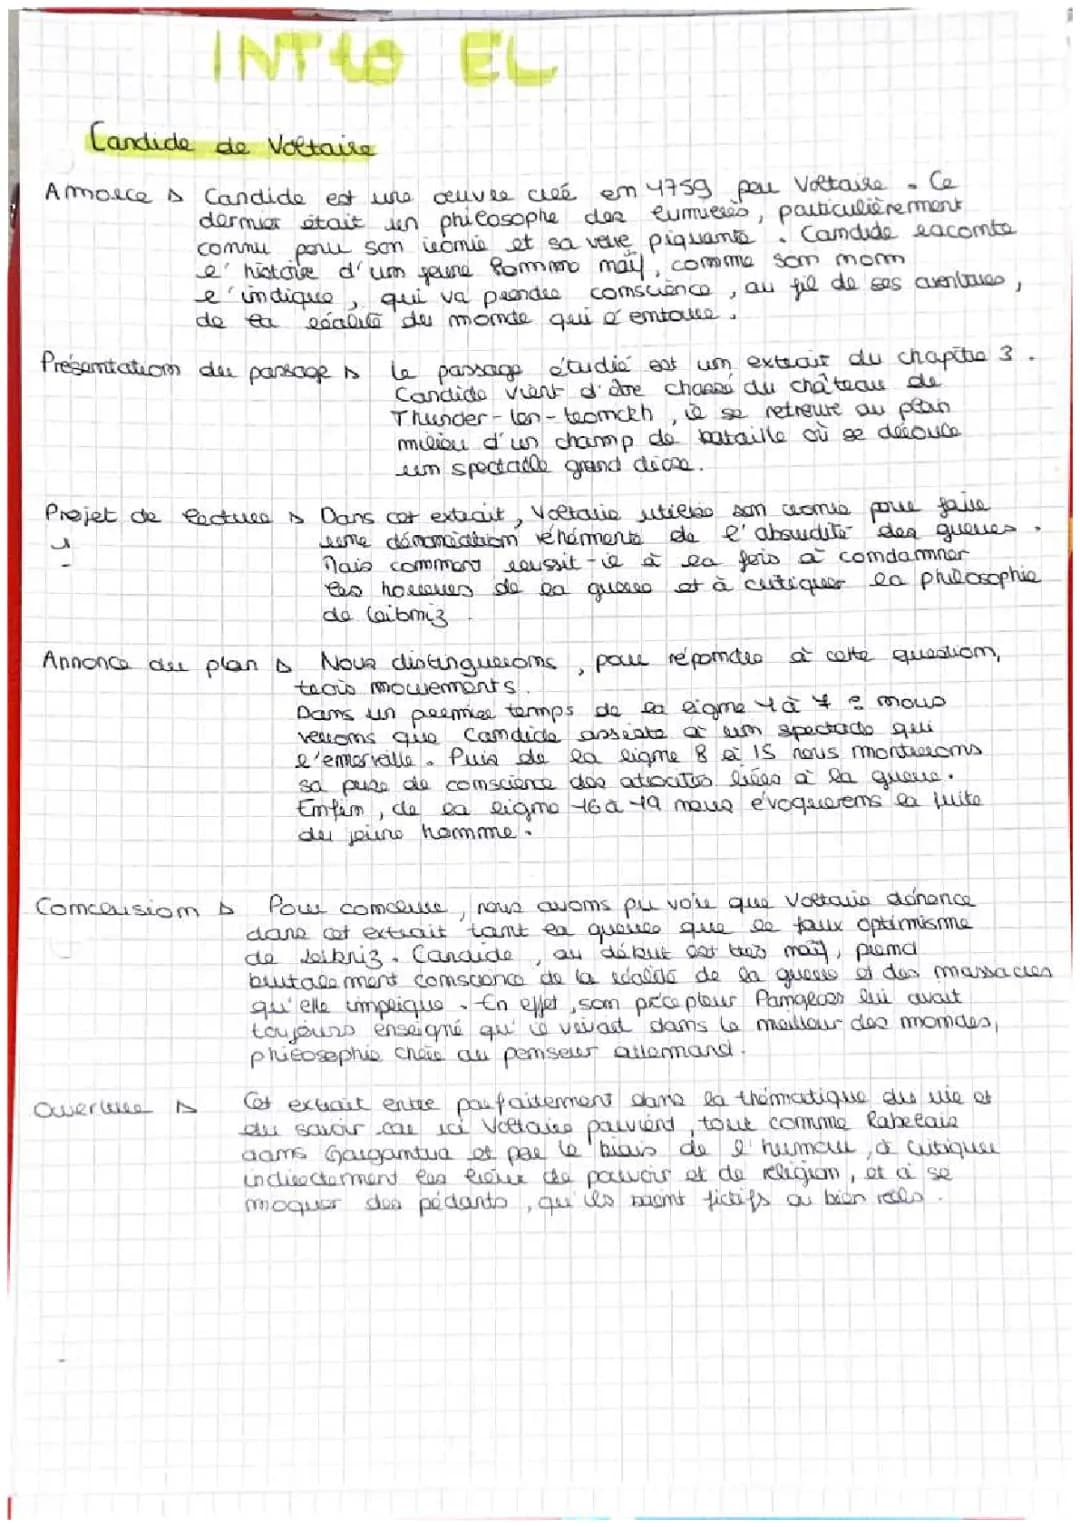 INTro EL
Candide de Voltaire
Amorce ▷ Candide est une œuvre créé en 1759 par Voltaire. Ce
dernier était un philosophe des lumières, particulièrement
connu pour son ironie et sa verve piquante. Candide raconte
l'histoire d'un jeune homme naïf, comme son nom
l'indique, qui va prendre conscience, au fil de ses aventures,
de la réalité du monde qui l'entoure.
Présentation du passage ▷ Le passage étudié est un extrait du chapitre 3.
Candide vient d'être chassé du château de
Thunder-ten-tronckh, il se retrouve au plein
milieu d'un champ de bataille où se déroule
un spectacle grandiose.
Projet de lecture ▷ Dans cet extrait, Voltaire utilise son ironie pour faire
une dénonciation véhémente de l'absurdité des guerres.
Mais comment réussit-il à la fois à condamner
les horreurs de la guerre et à critiquer la philosophie
de Leibniz
Annonce du plan ▷ Nous distinguerons, pour répondre à cette question,
trois mouvements.
Dans un premier temps de la ligne 1 à 7 : nous
verrons que Candide assiste à un spectacle qui
l'émerveille. Puis de la ligne 8 à 15 nous montrerons
sa prise de conscience des atrocités liées à la guerre.
Enfin, de la ligne 16 à 19 nous évoquerons la fuite
du jeune homme.
Conclusion ▷ Pour conclure, nous avons pu voir que Voltaire dénonce
dans cet extrait tant la guerre que le faux optimisme
de Leibniz. Candide, au début est très naïf, prend
brutalement conscience de la réalité de la guerre et des massacres
qu'elle implique. En effet, son précepteur Pangloss lui avait
toujours enseigné qu'il vivait dans le meilleur des mondes,
philosophie chère au penseur allemand.
Ouverture ▷ Cet extrait entre parfaitement dans la thématique du rire et
du savoir car ici Voltaire parvient, tout comme Rabelais
dans Gargantua et par le biais de l'humour, à critiquer
indirectement les lieux de pouvoir et de religion, et à se
moquer des pédants, qu'ils soient fictifs ou bien réels.